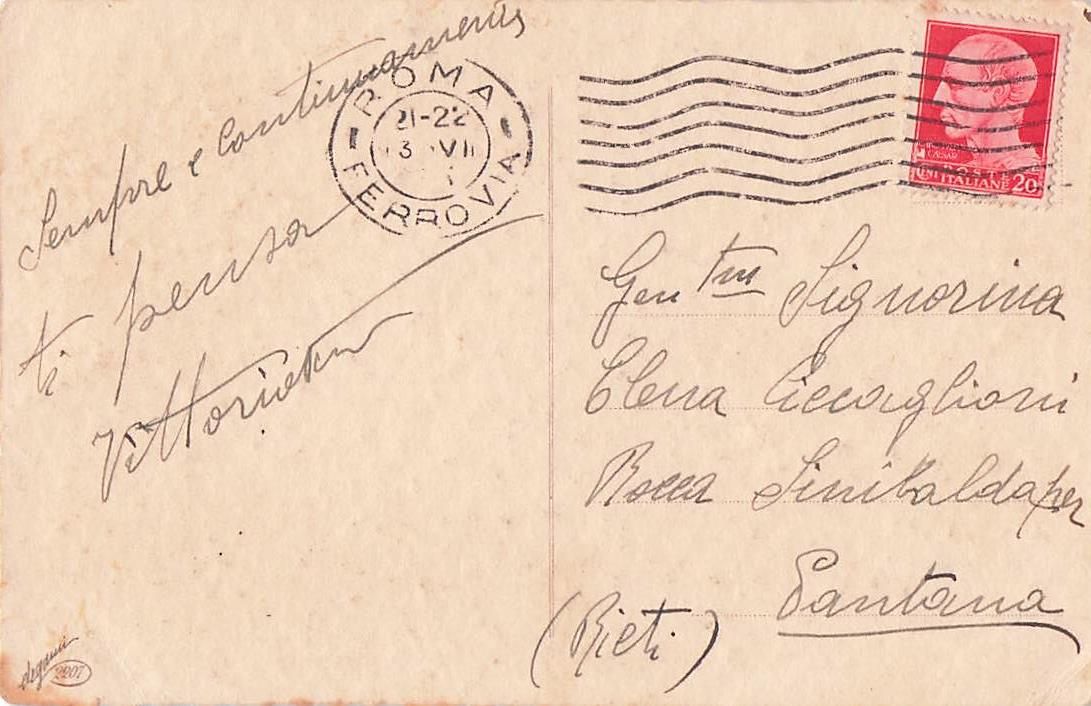 Sempre e continuamente
ti pensa
ROMA
21-22
FERROVIA
CAESAR
POSTE
ITALIANE 20
Gen tma Signorina
Elena Ciccaglioni
Rocca Sinibalda per
Pantana
(Rieti)
degami
2207